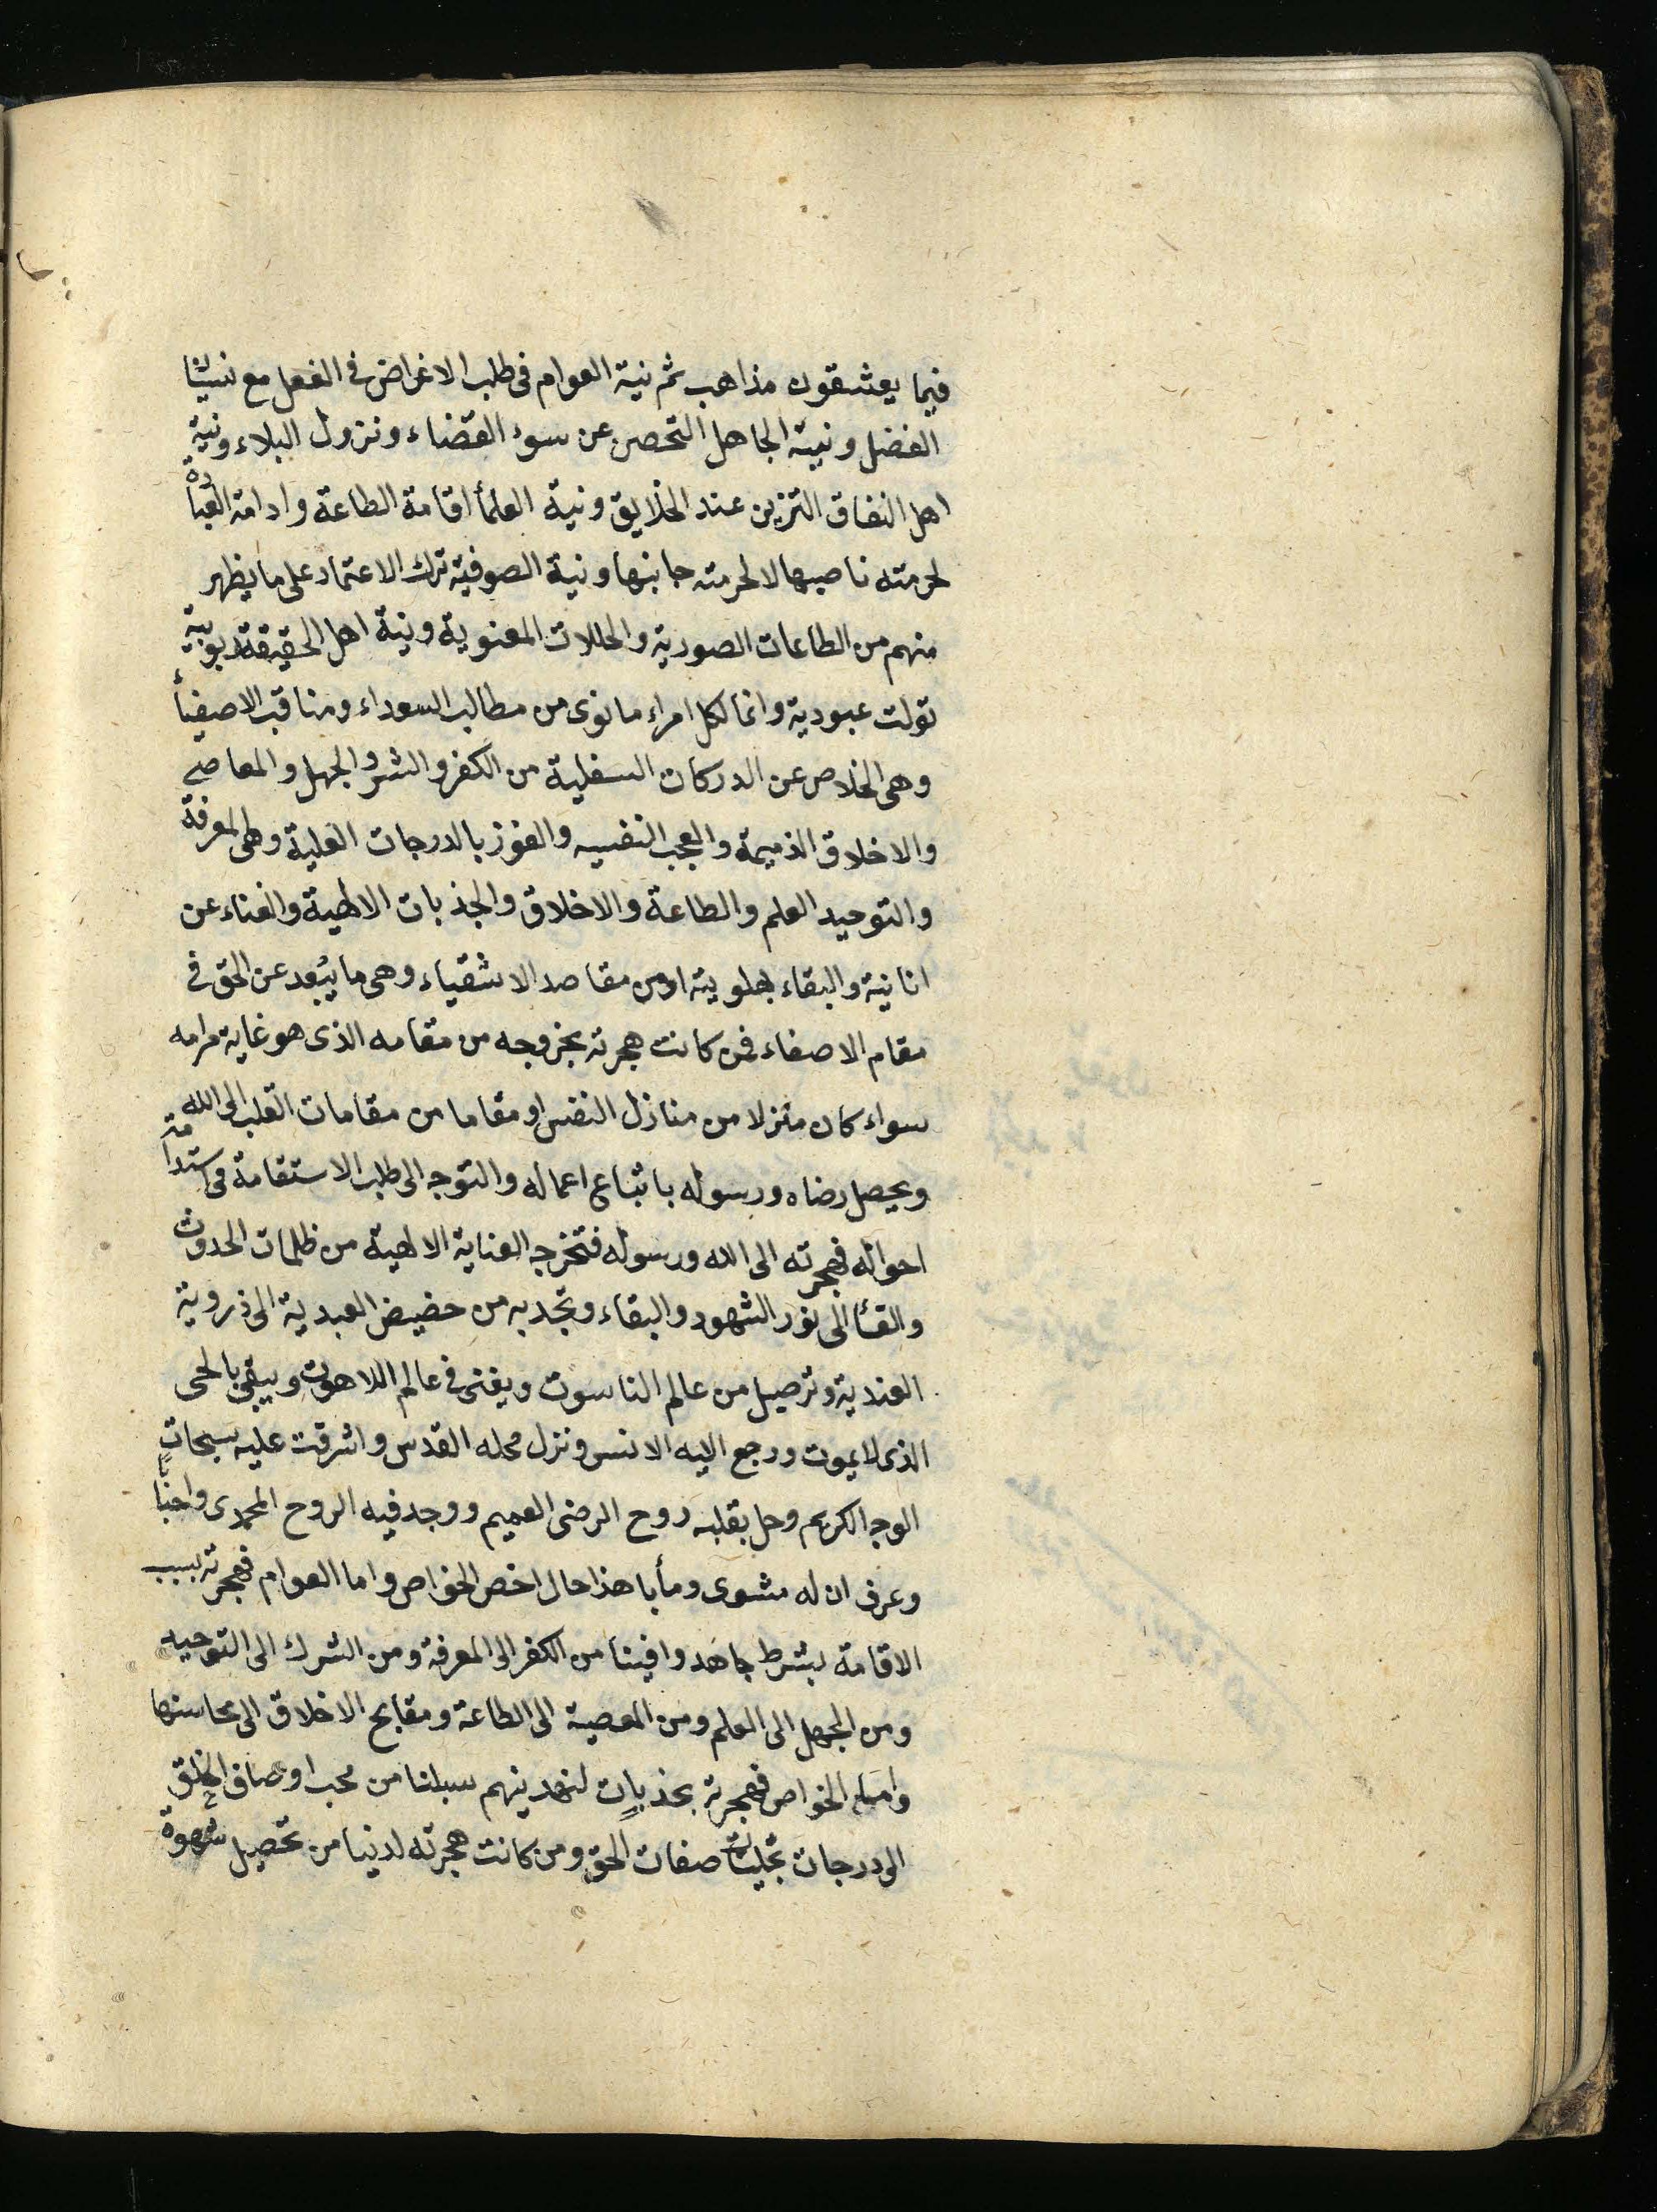 فيما يعشقون مذاهب ثم نية العوام فى طلب الاغراض فى الفعل مع نسيان
الفضل ونية الجاهل التحصن عن سوء القضاء ونزول البلاء ونية
اهل النفاق التزين عند الخلايق ونية العلمأ اقامة الطاعة وادامة العبادة
لحرمته ناصبها لا لحرمته جانبها ونية الصوفية ترك الاعتماد على ما يظهر
منهم من الطاعات الصورية والحالات المعنوية ونية اهل الحقيقة ربوبية
تولت عبودية وانما لكل امراء ما نوى من مطالب السعداء ومناقب الاصفيأ
وهى الخلاص عن الدركات السفلية من الكفر والشر والجهل والمعاصى
والاخلاق الذميمة والعجب النفسيه والفوز بالدرجات العلية وهى المعرفة
والتوحيد العلم والطاعة والاخلاق والجذبات الالهية والفناء عن
انانية والبقاء بهلويته او من مقاصد الاشقياء وهى ما يبعد عن الحق فى
مقام الاصفاء فمن كانت هجرته بخروجه من مقامه الذى هو غاية مرامه
سواء كان منزلا من منازل النفس او مقاما من مقامات القلب الى الله
ويحصل رضاه ورسوله باتباع اعماله والتوجه الى طلب الاستقامة فى استدامة
احواله فهجرته الى الله ورسوله فتخرجه العناية الالهية من ظلمات الحدوث
والفنأ الى نور الشهود والبقاء وتجذبه من حضيض العبدية الى ذروية
العندية وترصيل من عالم الناسوت ويفنى فى عالم اللاهوت ويبقى بالحى
الذى لا يموت ورجع اليه الانس ونزل محله القدس واشرقت عليه سبحات
الوجه الكريم وحل بقلبه روح الرضى العميم ووجد فيه الروح المحمدى واحبابا
وعرف ان له مثوى ومأبا هذا حال اخص الخواص واما العوام فهجرته بسبب
الاقامة بشرط جاهدوا فينا من الكفر الى المعرفة ومن الشرك الى التوحيد
ومن الجهل الى العلم ومن المعصية الى الطاعة ومقابح الاخلاق الى محاسنها
واما الخواص فهجرته بجذبات لنهدينهم سبلنا من محب اوصاف الخلق
الى درجات تجليات صفات الحق ومن كانت هجرته لدنيا من تحصيل شهوة